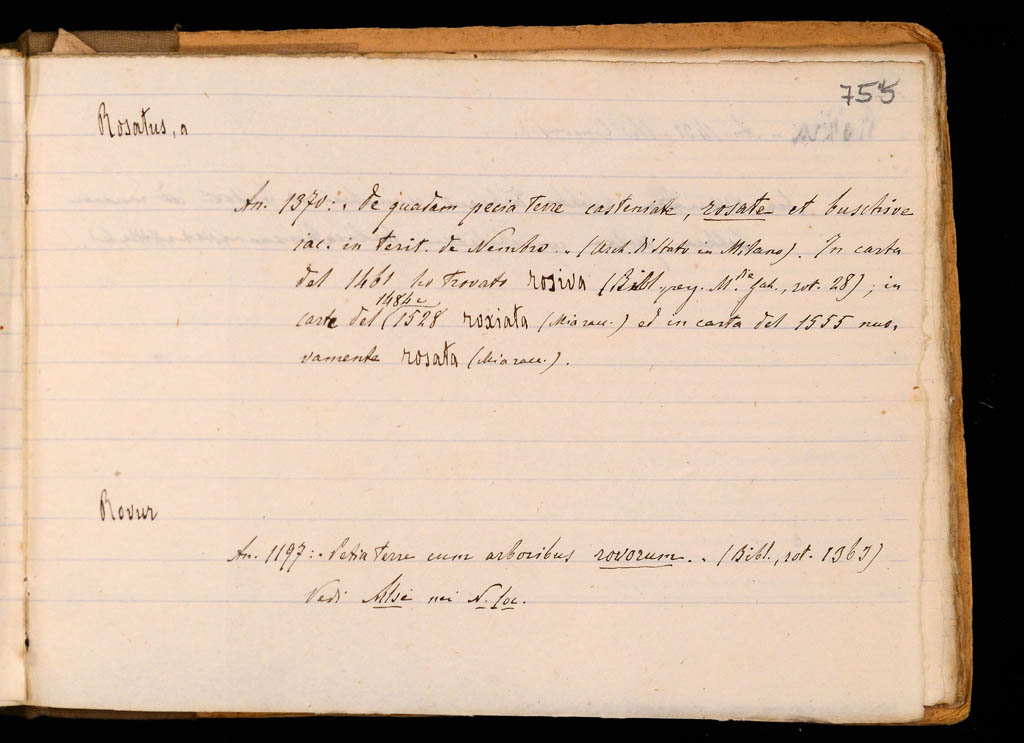 755
Rosatus, a
An. 1370:. de quadam pecia terre casteniate, rosate et buschive
iac. in terit. de Nembro .. (Arch. di Stato in Milano). In carta
del 1461 ho trovato rosiva (Bibl., rot. 28); in
1484 e
carte del 1528 roxiata (Miarac.) ed in carta del 1555 nuo-
vamente rosata (Miarac.).
Rovur
An. 1197:. Petia terre cum arboribus rovorum .. (Bibl., rot. 1363)
Vedi nei N. loc.